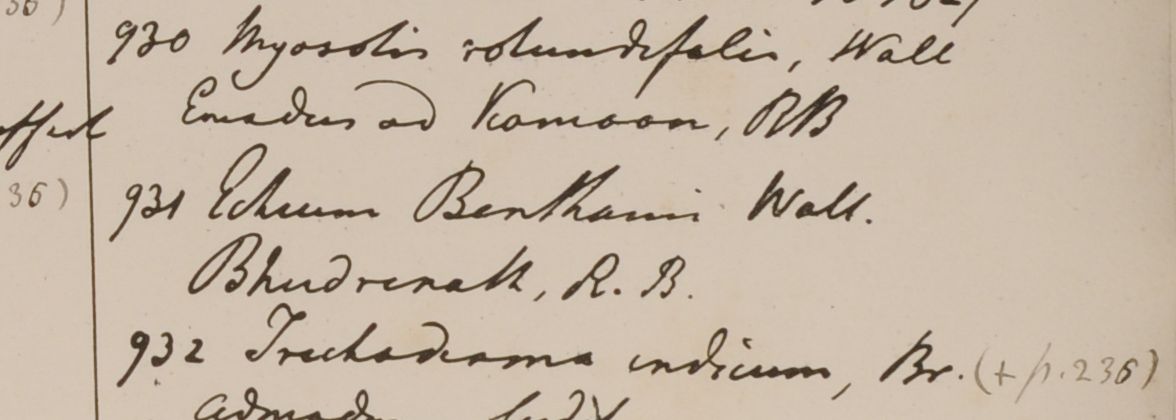 36)
930 Myosotis rotundifolia, Wall
Emodus ad Kamoon, RB
36)
931 Echium Benthami Wall.
Bhudrenath, R. B.
932 Trichodesma indicum, Br. (+ p. 236)